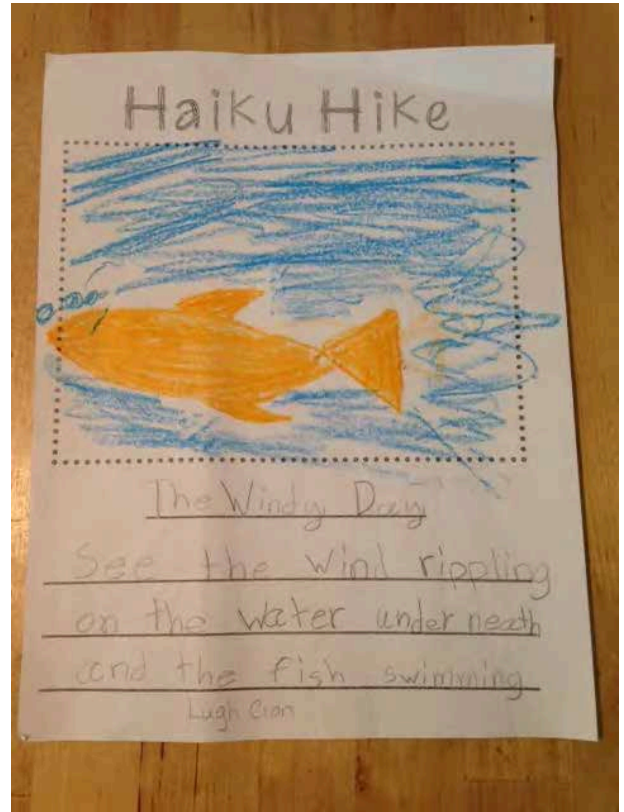 Haiku Hike
The Windy Day
See the wind rippling
on the water under neath
and the fish swimming
Lugh Cian